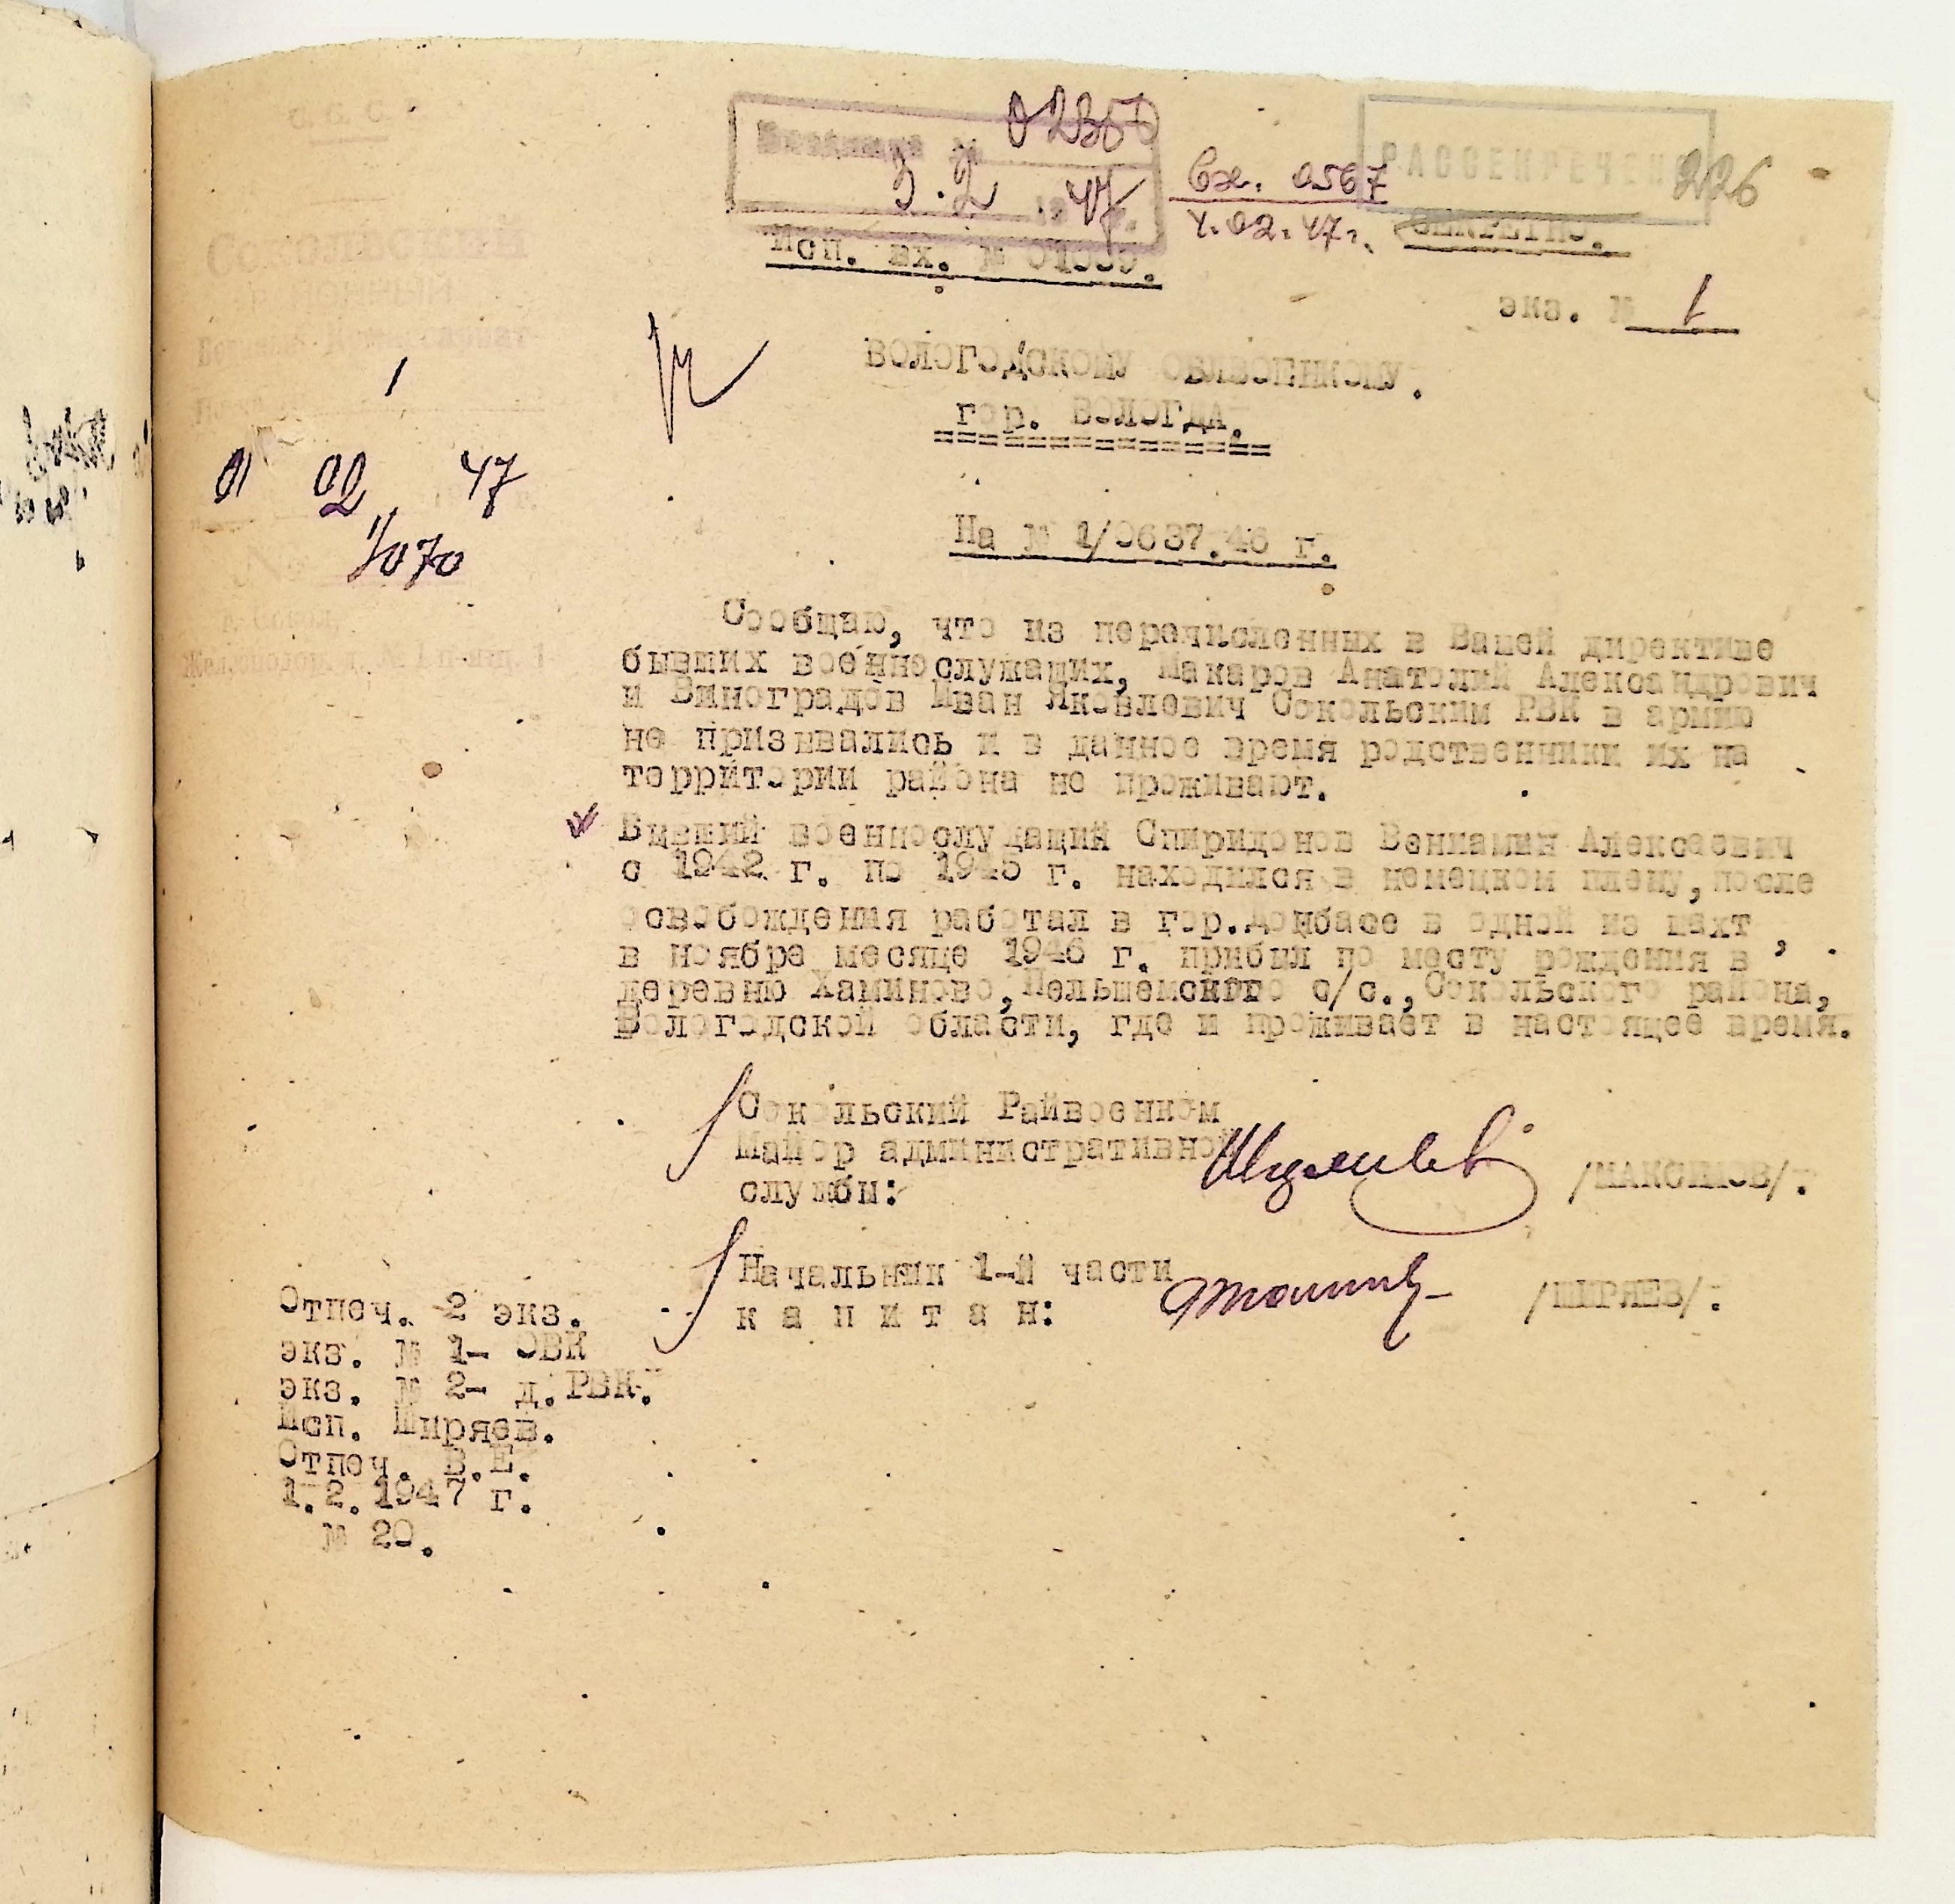 Входящ. № 02350
3.2 1947 г.
Вх. 0567
4.02.47г.
РАССЕКРЕЧЕНО
226
СЕКРЕТНО.
Исп. вх. №
экз. № 1
Сокольский
Районный
Военный Комиссариат
1
01 02 47 г.
№ 1/070
г. Сокол,
ВОЛОГОДСКОМУ ОБЛВОЕНКОМУ.
гор. ВОЛОГДА.
На № 1/0637.46 г.
Сообщаю, что из перечисленных в Вашей директиве
бывших военнослужащих, Макаров Анатолий Александрович
и Виноградов Иван Яковлевич Сокольским РВК в армию
не призывались и в данное время родственники их на
территории района не проживают.
Бывший военнослужащий Спиридонов Вениамин Алексеевич
с 1942 г. по 1945 г. находился в немецком плену, после
освобождения работал в гор.Донбасе в одной из шахт ,
в ноябре месяце 1946 г. прибыл по месту рождения в
деревню Хаминово, Пельшемского с/с., Сокольского района,
Вологодской области, где и проживает в настоящее время.
Сокольский Райвоенком
Майор административной
службы:
/МАКСИМОВ/.
Начальник 1-й части
к а п и т а н:
/ШИРЯЕВ/.
Отпеч. 2 экз.
экз. № 1- ОВК
экз. № 2- д.РВК.
Исп. Ширяев.
Отпеч. В.Е.
1.2.1947 г.
№ 20.